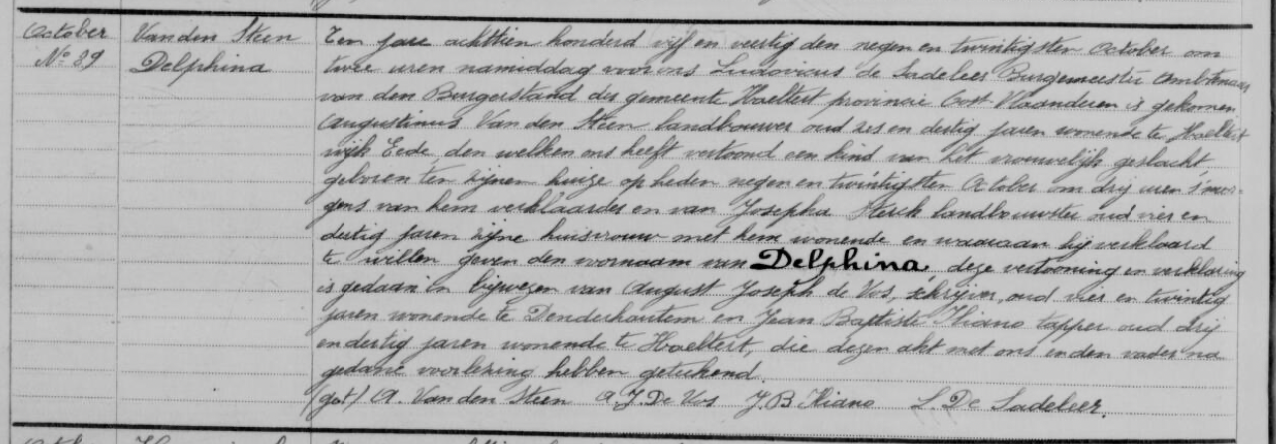 October
No 89
Van den Steen
Delphina
Ten jare achttien honderd vijf en veertig den negen en twintigsten October om
twee uren namiddag voor ons Ludovicus de Sadeleer Burgemeester Ambtenaar
van den Burgerstand der gemeente Haeltert provincie Oost Vlaanderen is gekomen
Augustinus Van den Steen landbouwer oud zes en dertig jaren wonende te Haeltert
wijk Eede, den welken ons heeft vertoond een kind van het vrouwelijk geslacht,
geboren ten zijnen huize op heden negen en twintigsten October om drij uren s'mor-
gens van hem verklaarder en van Josepha Sterck landbouwster oud vier en
dertig jaren zijne huisvrouw met hem wonende en waaraan hij verklaard
te willen geven den voornaam van Delphina, deze vertooning en verklaring
is gedaan in bijwezen van August Joseph de Vos, schrijver, oud vier en twintig
jaren wonende te Denderhoutem en Jean Baptiste tapper oud drij
en dertig jaren wonende te Haeltert, die dezen akt met ons en den vader na
gedane voorlezing hebben geteekend.
(get) A. Van den Steen A. J. De Vos J. B L. De Sadeleer.